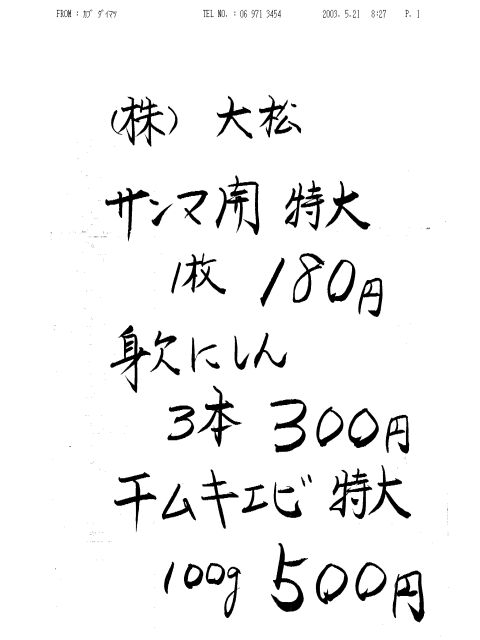 FROM : カブ ダイマツ TEL NO. : 06 971 3454 2003. 5.21 8:27 P. 1
(株) 大松
サンマ開 特大
1枚 180円
身欠にしん
3本 300円
干ムキエビ 特大
100g 500円